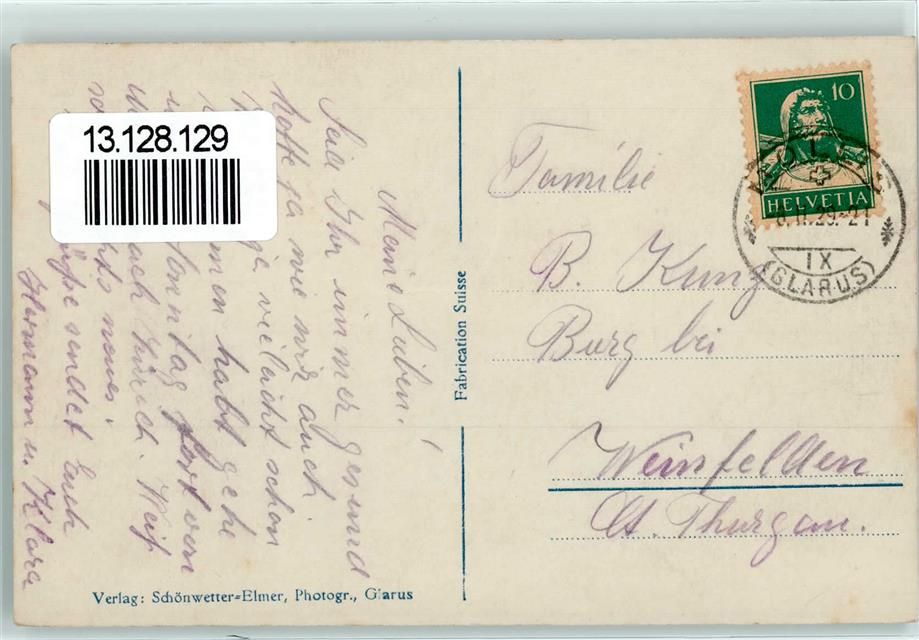 13.128.129
Meine Lieben!
Seid Ihr immer gesund
hoffe ja wie wir auch.
vileicht schon
men habt gehe
Sonntag fort von
nach Zürich. Weiß
nichts neues.
Grüsse sendet Euch
Hermann u. Klara
Verlag: Schönwetter-Elmer, Photogr., Glarus
Fabrication Suisse
10
HELVETIA
IX
(GLARUS)
Familie
B. Kunz
Burg bei
Weinfelden
Ct. Thurgau.